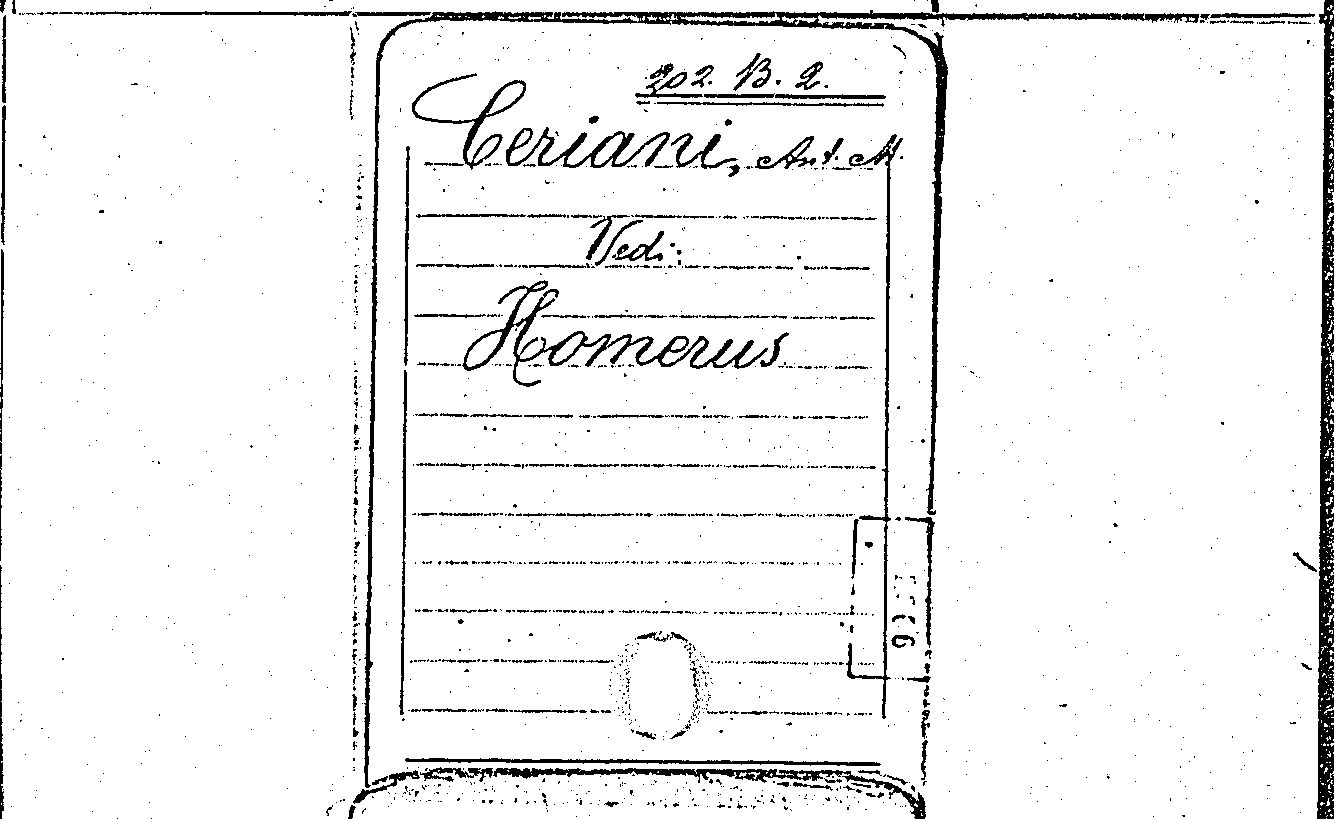 202. B. 2.
Ceriani, Ant. M.
Vedi:
Homerus